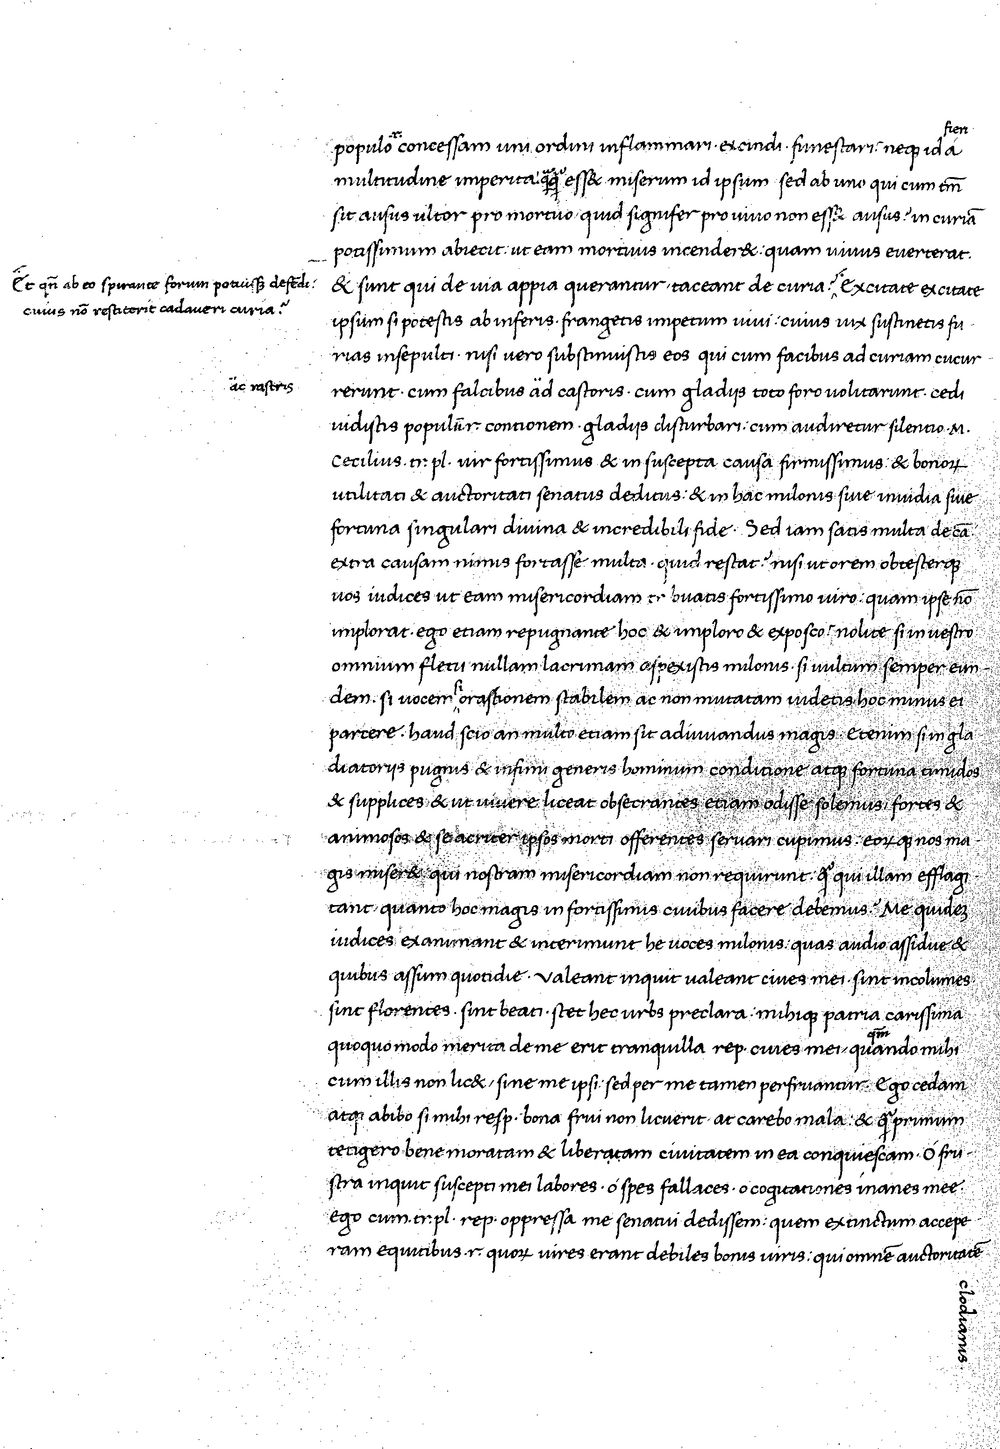 fieri
populo r̃ concessam uni ordini inflammari · excindi · funestari: neq̨ id á
multitudine imperita: q̃q̃ ess& miserum id ipsum sed ab uno qui cum tm̃
sit ausus ultor pro mortuo · quid signifer pro uiuo non ess& ausus? in curiã
potissimum abiecit · ut eam mortuus incender&: quam uiuus euerterat.
Et qñ ab eo spirante forum potuissȝ defẽdi:
cuius nõ restiterit cadaueri curia?
& sunt qui de uia appia querantur · taceant de curia? Excitate excitate
ipsum si potestis ab inferis · frangetis impetum uiui: cuius uix sustinetis fu
rias insepulti · nisi uero substinuistis eos qui cum facibus ad curiam cucur
ac rastris
rerunt · cum falcibus ad castoris · cum gladijs toto foro uolitarunt · cedi
uidistis populũ r̃ · contionem · gladijs disturbari: cum audiretur silentio · M.
Cecilius · tr̃ · pl · uir fortissimus & in suscepta causa firmissimus & bonoꝝ
utilitati & auctoritati senatus deditus: & in hac milonis siue inuidia siue
fortuna singulari diuina & incredibili fide · Sed iam satis multa de cã
extra causam nimis fortasse multa · quid restat? nisi ut orem obtesterq̨
uos iudices ut eam misericordiam tr̃ buatis fortissimo uiro: quam ipse nõ
implorat · ego etiam repugnante hoc & imploro & exposco: nolite si in uestro
omnium fletu nullam lacrimam aspexistis milonis · si uultum semper eun-
dem · si uocem si orationem stabilem ac non mutatam uidetis hoc minus ei
parcere · haud scio an multo etiam sit adiuuandus magis · Etenim si in gla
diatorijs pugnis & infimi generis hominum conditione atq̨ fortuna timidos
& supplices & ut uiuere liceat obsecrantes etiam odisse solemus: fortes &
animosos & se acriter ipsos morti offerentes seruari cupimus: eoꝝ q̨ nos ma-
gis miser& qui nostram misericordiam non requirunt · q̃ qui illam efflagi
tant · quanto hoc magis in fortissimis ciuibus facere debemus? Me quidez
iudices exanimant & interimunt he uoces milonis: quas audio assidue &
quibus assum quotidie · Valeant inquit ualeant ciues mei · sint incolumes
sint florentes · sint beati · stet hec urbs preclara: mihiq̨ patria carissima
qñm
quoquomodo merita de me erit tranquilla rep · ciues mei · quando mihi
cum illis non lic& · sine me ipsi · sed per me tamen perfruantur · Ego cedam
atq̨ abibo si mihi resp · bona frui non licuerit · at carebo mala: & q̃ primum
tetigero bene moratam & liberatam ciuitatem in ea conquiescam · O fru-
stra inquit suscepti mei labores · o spes fallaces · o cogitationes inanes mee ·
ego cum · tr̃ · pl · rep · oppressa me senatui dedissem: quem extinctum accepe
ram equitibus · r̃ · quoꝝ uires erant debiles bonis uiris: qui omnẽ auctoritatẽ
clodianis